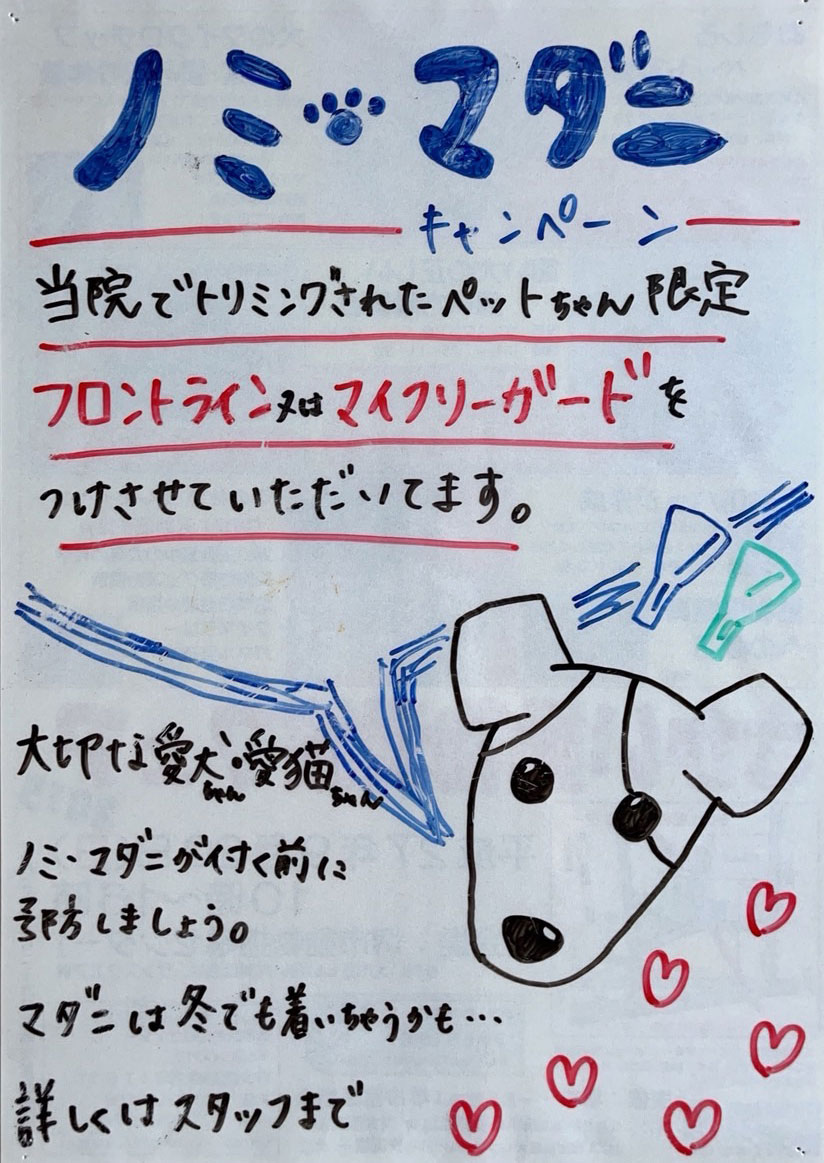 ノミ・マダニ
キャンペーン
当院でトリミングされたペットちゃん限定
フロントライン又はマイフリーガードを
つけさせていただいてます。
大切な愛犬ちゃん・愛猫ちゃん
ノミ・マダニが付く前に
予防しましょう。
マダニは冬でも着いちゃうかも…
詳しくはスタッフまで